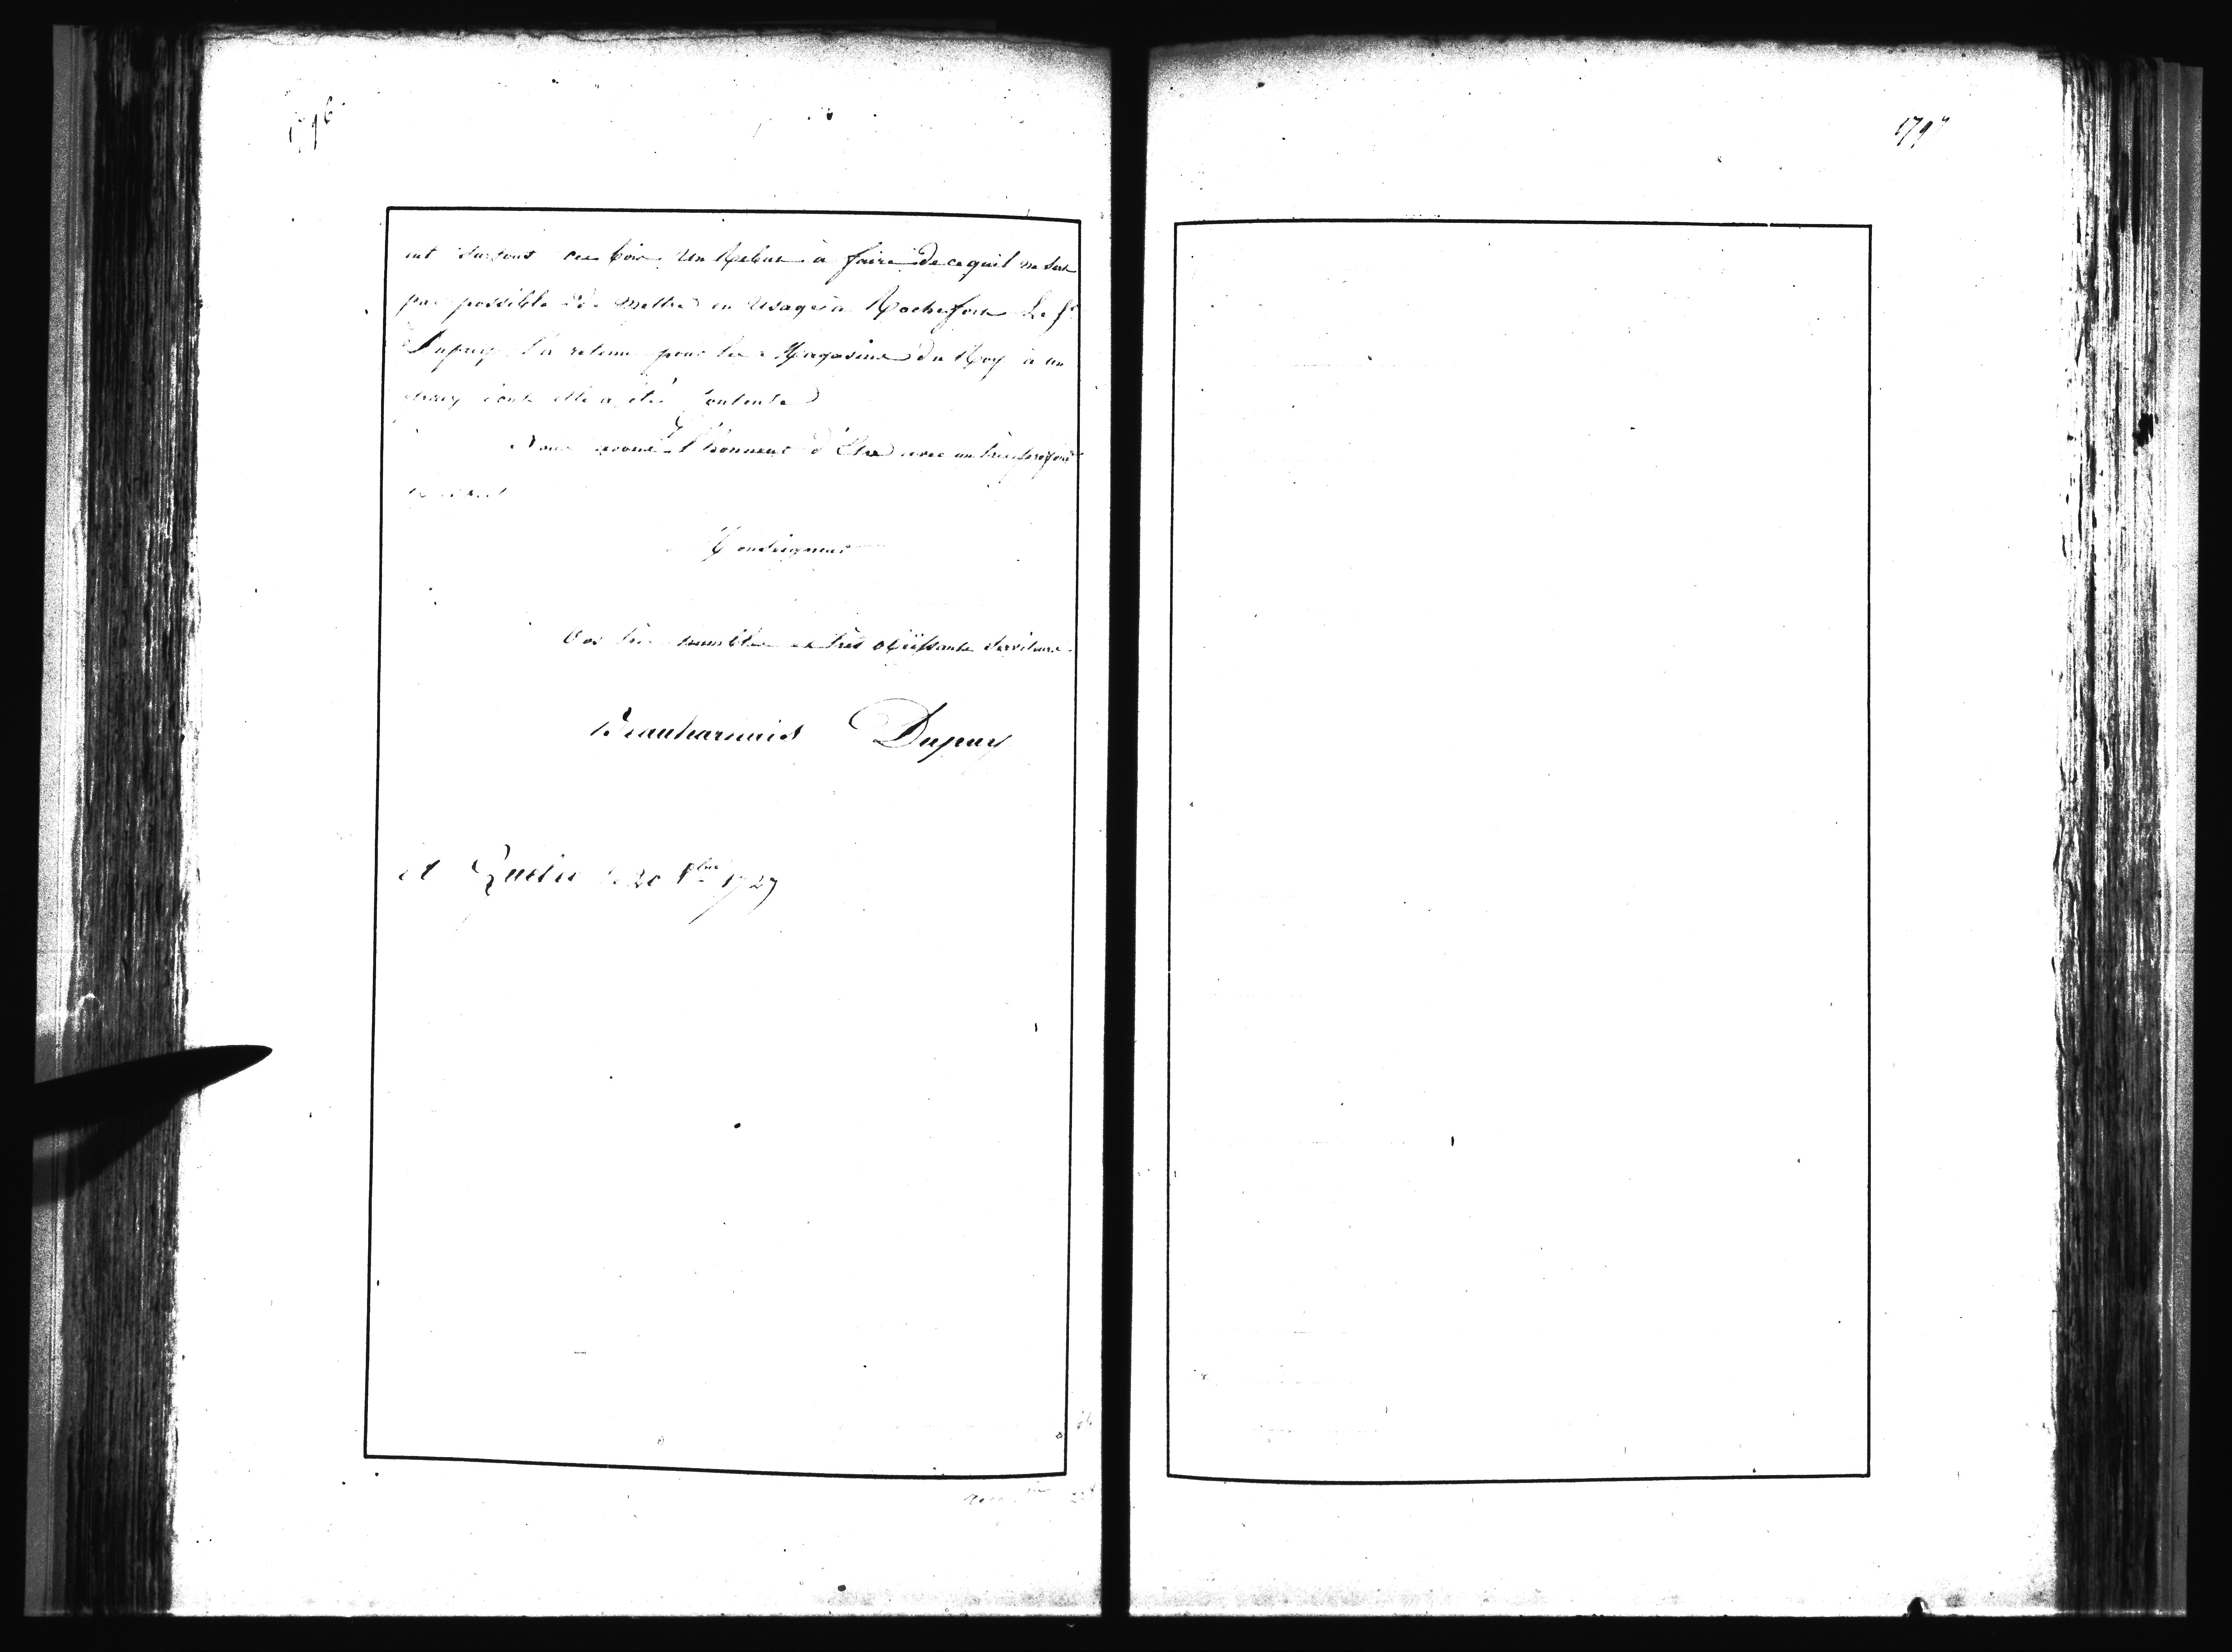 1796
1797
eut surtout ces bois un Rebut à faire de ce quil ne sera
pas possible de mettre en usage à Rochefort Le Sr
Dupuy l'a retenu pour les Magasins du Roy à un
prix dont elle a été Contente
Nous avons l'honneur d'Etre avec un très profond
respect
Monseigneur
Vos très humbles et très obéissants serviteurs
Beauharnois Dupuy
A Quebec le 20 8bre 1727